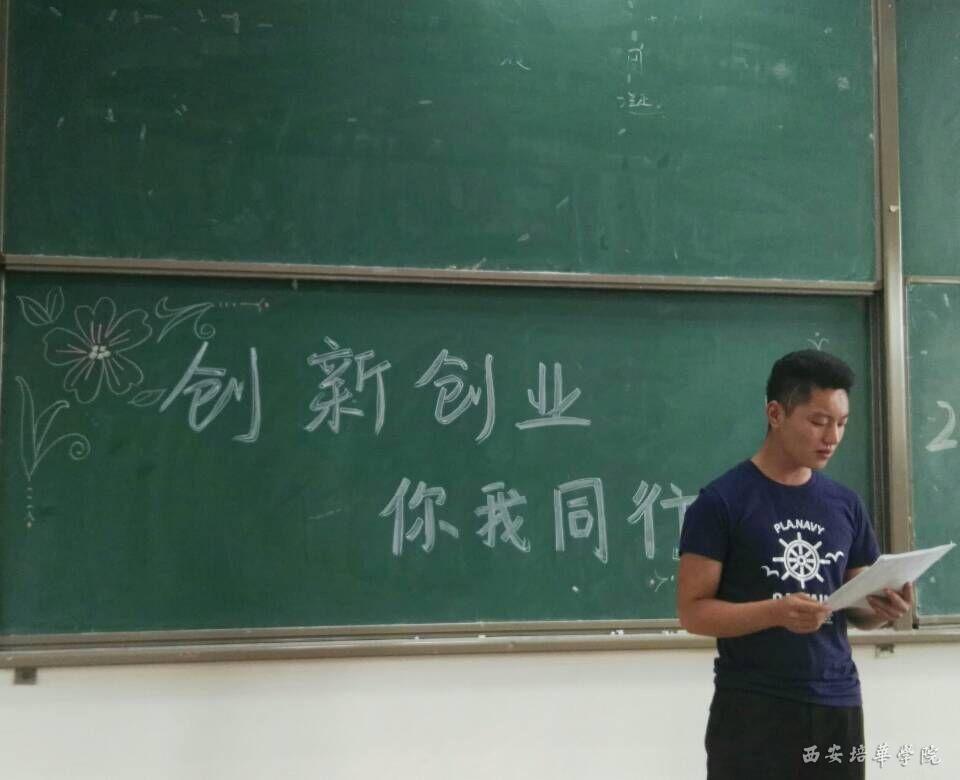 创新创业
你我同行
2
PLA.NAVY
西安培華学院